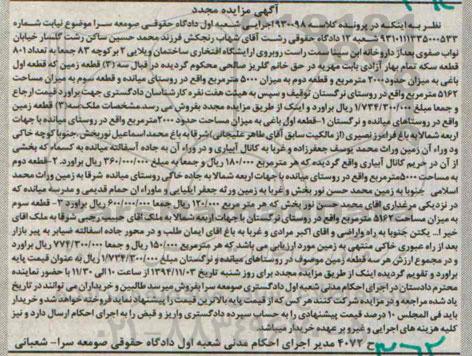 آگهی مزایده مجدد
نظر به اینکه در پرونده کلاسه ۹۳۰۰۹۸ اجرایی شعبه اول دادگاه حقوقی صومعه سرا موضوع نیابت شماره
۹۳۱۰۱۱۱۳۳۵۰۰۰۵۳۳ شعبه ۱۲ دادگاه حقوقی رشت آقای شهاب رنجکش فرزند محمد حسین ساکن رشت گلسار خیابان
نواب صفوی بعد از داروخانه ابن سینا سمت راست روبروی آرایشگاه افتخاری ساختمان ویلایی ۲ بر کوچه ۸۳ جمعا به تعداد ۸۰۱
قطعه سکه تمام بهار آزادی بابت مهریه در حق خانم گلریز صالحی محکوم گردیده در قبال سه (۳) قطعه زمین که قطعه اول
باغی به میزان حدود ۲۰۰۰ مترمربع و قطعه دوم به میزان ۵۰۰۰ مترمربع واقع در روستای میانده و قطعه سوم به میزان مساحت
۵۱۶۲ مترمربع واقع در روستای نرگستان توقیف و سپس به هیئت هفت نفره کارشناسان دادگستری جهت برآورد قیمت ارجاع
و جمعا مبلغ ۱/۷۳۴/۳۰۰/۰۰۰ ریال برآورد و اینک از طریق مزایده مجدد بفروش می رسد. مشخصات ملک سه (۳) قطعه زمین
واقع در روستاهای میانده و نرگستان ۱- قطعه اول باغی به میزان مساحت حدود ۲۰۰۰ مترمربع واقع در روستای میانده با جهات
اربعه شمالا به باغ فرامرز نصیری (از مالکیت سابق آقای طاهر علیجانی) شرقا به باغ محمد اسماعیل نوربخش جنوبا کوچه خاکی
ود وراء آن زمین وراث محمد یوسف جعفرزاده و غربا به کانال آبیاری و در وراء آن به جاده آسفالته میانده به کسماء که بخشی
از آن در حریم کانال آبیاری واقع گردیده که هر مترمربع ۱۸۰/۰۰۰ ریال و جمعا به مبلغ ۳۶۰/۰۰۰/۰۰۰ ریال برآورد. ۲- قطعه دوم
به مساحت ۵۰۰۰ مترمربع واقع در روستای میانده با جهات اربعه شمالا به جاده خاکی روستای میانده شرقا به زمین ورات
اسلامی جنوبا به زمین محمد حسن نور بخش و غربا به زمین ورثه جعفر ایلیایی و ماوراء ان حمام قدیمی و مدرسه میانده که
در نزدیکی مرغداری آقای محمد حسن نور بخش که هر متر مربع ۱۲۰/۰۰۰ ریال جمعا ۶۰۰/۰۰۰/۰۰۰ ریال برآورد ۳- قطعه سوم
به میزان مساحت ۵۱۶۲ مترمربع واقع در روستای نرگستان با جهات اربعه شمالا به ملک آقای حسن رجبی شرقا به ملک آقای
خیرا... یکتن جنوبا به راه واراضی و آقای اکبر مرادی و غربا به باغ آقای ایمان طلب و در محور جاده اسفالته ضیابر به پیر بازار
بعد از راه عبوری خاکی منتهی به زمین مورد ارزیابی می باشد. که هر مترمربع ۱۵۰/۰۰۰ ریال و جمعا ۷۷۴/۳۰۰/۰۰۰ ریال برآورد
و در مجموع ارزش هر سه قطعه زمین موصوف در روستاهای میانده و نرگستان مبلغ ۱/۷۳۴/۳۰۰/۰۰۰ ریال به عنوان قیمت پایه
برآورد و تقویم گردیده اینک از طریق مزایده مجدد برای روز شنبه تاریخ ۱۳۹۴/۱۱/۰۳ از ساعت ۱۰ الی ۱۱/۳۰ با حضور نماینده
محترم دادستان در اجرای احکام مدنی شعبه اول دادگستری صومعه سرا بفروش میرسد طالبین و خریداران می توانند در تاریخ
یاد شده مراجعه و در مزایده شرکت کنند هر کس که از قیمت پایه بالاترین قیمت را پیشنهاد نماید فروخته خواهد شد و خریدار
باید فی المجلس ۱۰ درصد قیمت پیشنهادی را به حساب سپرده دادگستری واریز و قبض را به اجرای احکام ارسال دارد و نیز
کلیه هزینه های اجرایی و غیره بر عهده خریدار میباشد
ح ۴۰۷۲ مدیر اجرای احکام مدنی شعبه اول دادگاه حقوقی صومعه سرا- شعبانی